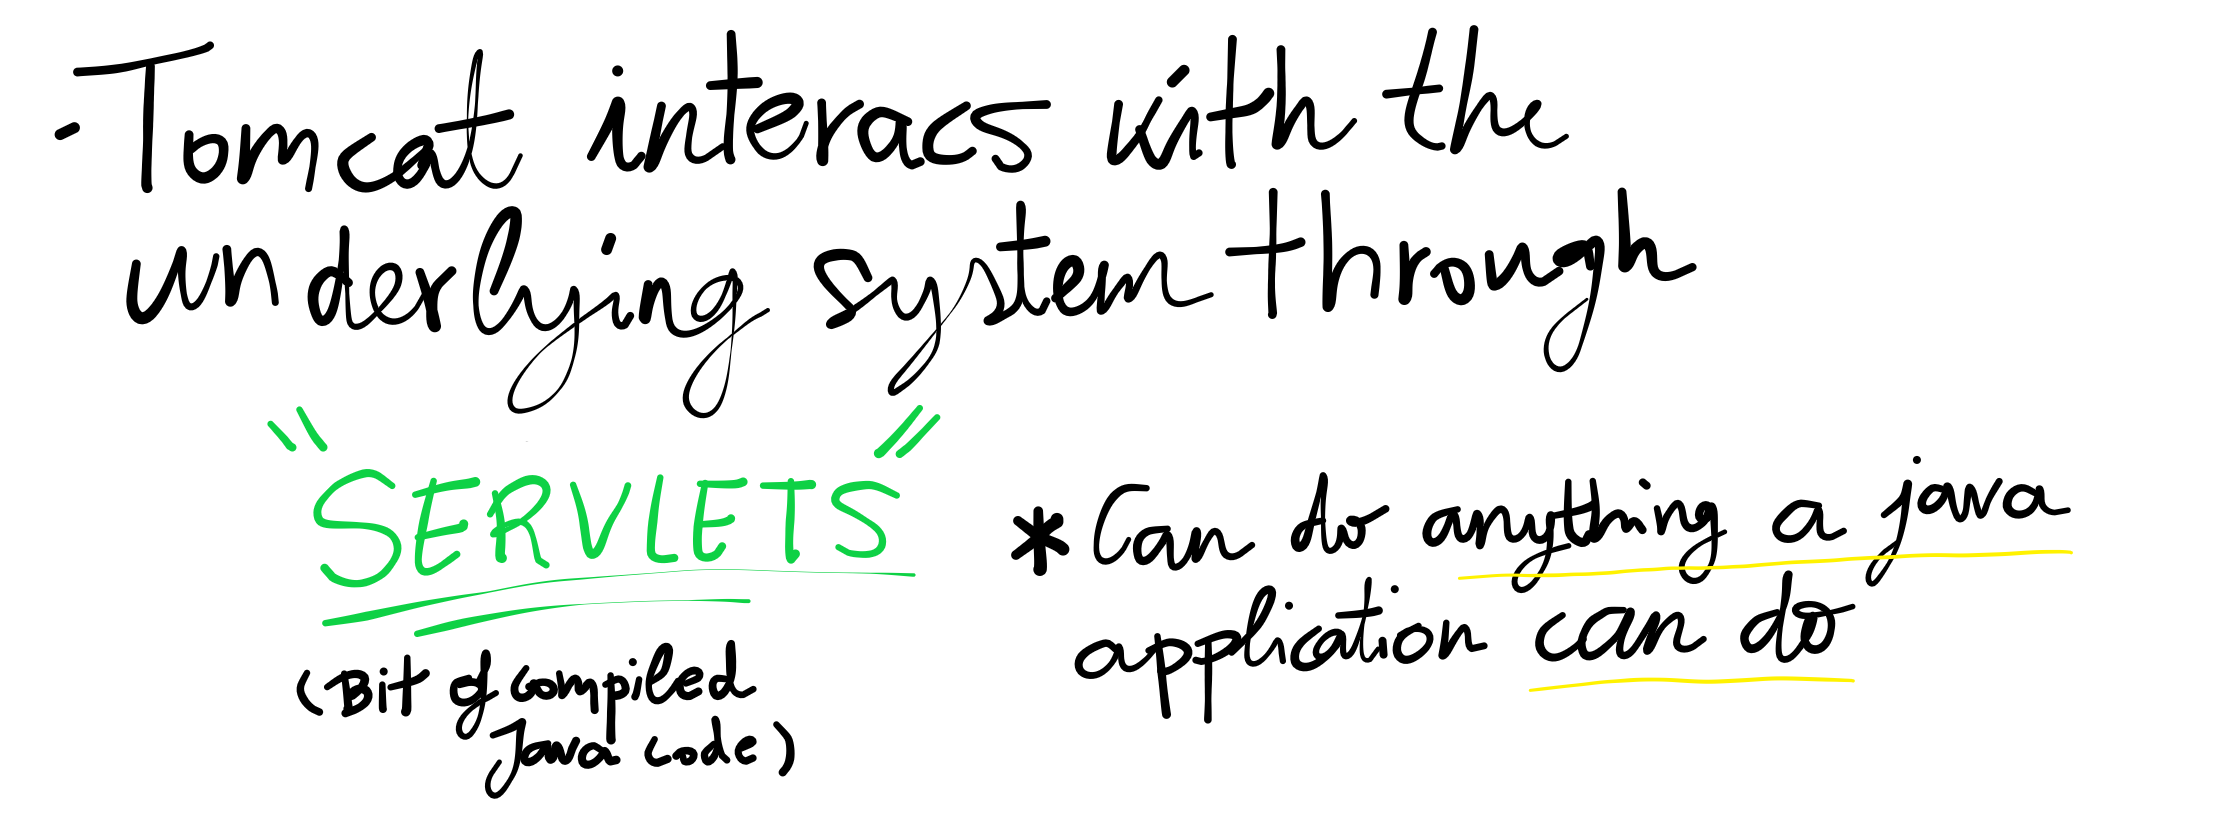 - Tomcat interacs with the
underlying system through
"SERVLETS"
(Bit of compiled
Java code)
* Can do anything a java
application can do